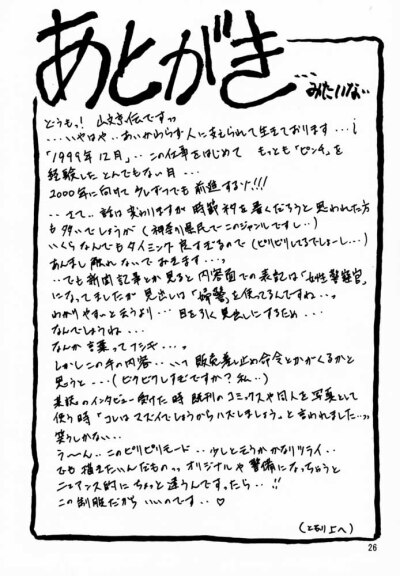 あとがき…
みたいな…
どうもっ! 山文き伝ですっ
…いやはや…あいかわらず人に支えられて生きております…!
「1999年12月」…この仕事をはじめて もっとも「ピンチ」を
経験した とんでもない月…
2000年に向けて少しずつでも前進するゾ!!!
…さて…話は変わりますが 時節柄を 考くだろうと思われた方
も 多いでしょうが (神奈川県民でこのジャンルですし…)
いくらなんでもタイミング 悪すぎるので (ピリピリしてるでしょーし…)
あんまし触れないでおきます…。
…でも新聞記事とか見ると内容面での表記は「女性警察官」
になってましたが 見出しは「婦警」を使ってるんですね…。
わかりやすいと云うより… 目を引く見出しにするため…
なんでしょうね…
なんか言葉ってフシギ…。
しかしこの手の内容…いつ販売差し止め命令とかがくるかと
思うと…(ビクビクしすぎですか?私…)
インタビュー受けた時 既刊のコミックスや同人を写真として
使う時「コレはマズイでしょうからハズしましょう」と言われました…。
笑うしかない…
う〜ん…このピリピリモード…少しどころかかなりツライ…
でも描きたいんだもの。オリジナルや警備になっちゃうと
ニュアンス的にちょっと違うんですったら…!!
この制服だから いいのです…♡
(となり上へ)
26